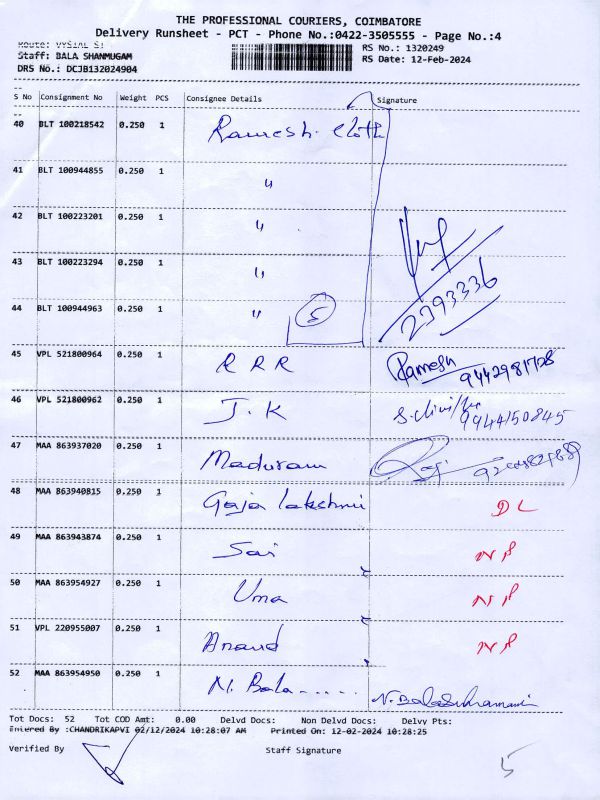 THE PROFESSIONAL COURIERS, COIMBATORE
Delivery Runsheet - PCT - Phone No.:0422-3505555 - Page No.:4
Staff: BALA SHANMUGAM
RS No.: 1320249
DRS No.: DCJB132024904
RS Date: 12-Feb-2024
S No Consignment No Weight PCS Consignee Details Signature
40 BLT 100218542 0.250 1 Ramesh. Cloth
41 BLT 100944855 0.250 1 "
42 BLT 100223201 0.250 1 "
43 BLT 100223294 0.250 1 "
44 BLT 100944963 0.250 1 " 5 2793336
45 VPL 521800964 0.250 1 R R R Ramesh 9442981728
46 VPL 521800962 0.250 1 J. K 9944150845
47 MAA 863937020 0.250 1 Maduram
48 MAA 863940815 0.250 1 Gaja lakshmi DL
49 MAA 863943874 0.250 1 Sai NP
50 MAA 863954927 0.250 1 Uma NP
51 VPL 220955007 0.250 1 Anand NP
52 MAA 863954950 0.250 1 N. Bala...... N. Balasubramani
Tot Docs: 52 Tot COD Amt: 0.00 Delvd Docs: Non Delvd Docs: Delvy Pts:
Entered By :CHANDRIKAPVI 02/12/2024 10:28:07 AM Printed On: 12-02-2024 10:28:25
Verified By Staff Signature
5